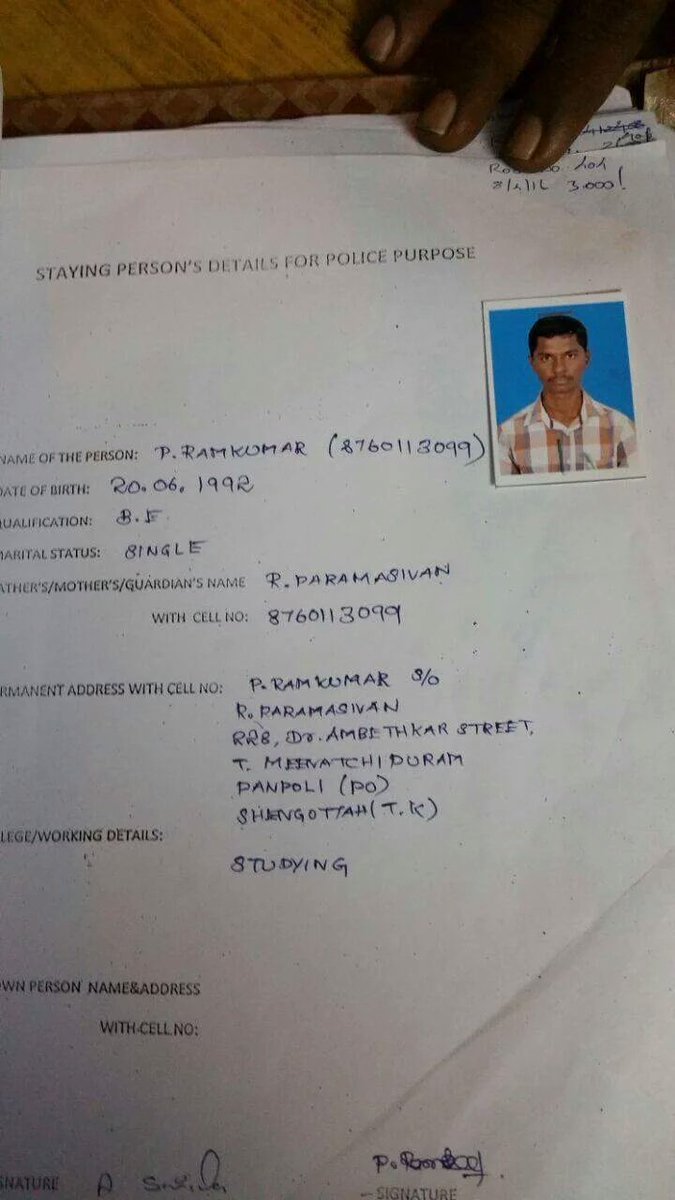 8/4/16 3,000/
STAYING PERSON'S DETAILS FOR POLICE PURPOSE
NAME OF THE PERSON: P. RAMKUMAR (8760113099)
DATE OF BIRTH: 20.06.1992
QUALIFICATION: B.E.
MARITAL STATUS: SINGLE
ATHER'S/MOTHER'S/GUARDIAN'S NAME R. PARAMASIVAN
WITH CELL NO: 8760113099
RMANENT ADDRESS WITH CELL NO: P. RAMKUMAR S/O
R. PARAMASIVAN
228, Dr. AMBETHKAR STREET,
T. MEENATCHIPURAM
PANPOLI (PO)
SHENGOTTAH (T.K)
LEGE/WORKING DETAILS:
STUDYING
OWN PERSON NAME&ADDRESS
WITH CELL NO:
GNATURE
SIGNATURE